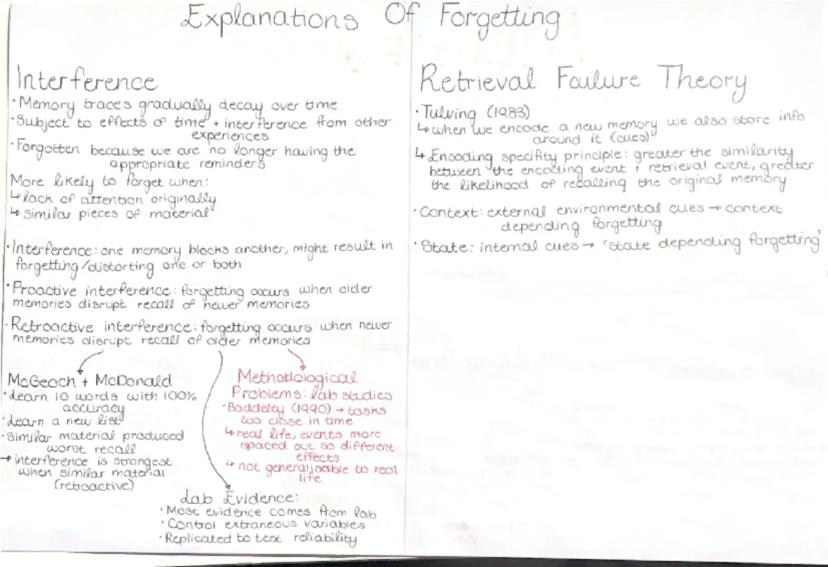 Explanations Of Forgetting
Interference
· Memory traces gradually decay over time
· Subject to effects of time + interference from other
experiences
· Forgotten because we are no longer having the
appropriate reminders
More likely to forget when:
↳ lack of attention originally
↳ similar pieces of material
· Interference: one memory blocks another, might result in
forgetting/distorting one or both
· Proactive interference: forgetting occurs when older
memories disrupt recall of newer memories
· Retroactive interference: forgetting occurs when newer
memories disrupt recall of older memories
McGeoch + McDonald
· Learn 10 words with 100%
accuracy
· Learn a new list
· Similar material produced
worst recall
→ interference is strongest
when similar material
(retroactive)
Methodological
Problems: lab studies
· Baddeley (1990) → tasks
too close in time
↳ real life, events more
spaced out so different
effects
↳ not generalisable to real
life
Lab Evidence:
· Most evidence comes from lab
· Control extraneous variables
· Replicated to test reliability
Retrieval Failure Theory
· Tulving (1983)
↳ when we encode a new memory we also store info
around it (cues)
↳ Encoding specifity principle: greater the similarity
between the encoding event + retrieval event, greater
the likelihood of recalling the original memory
· Context: external environmental cues → context
depending forgetting
· State: internal cues → 'state depending forgetting'